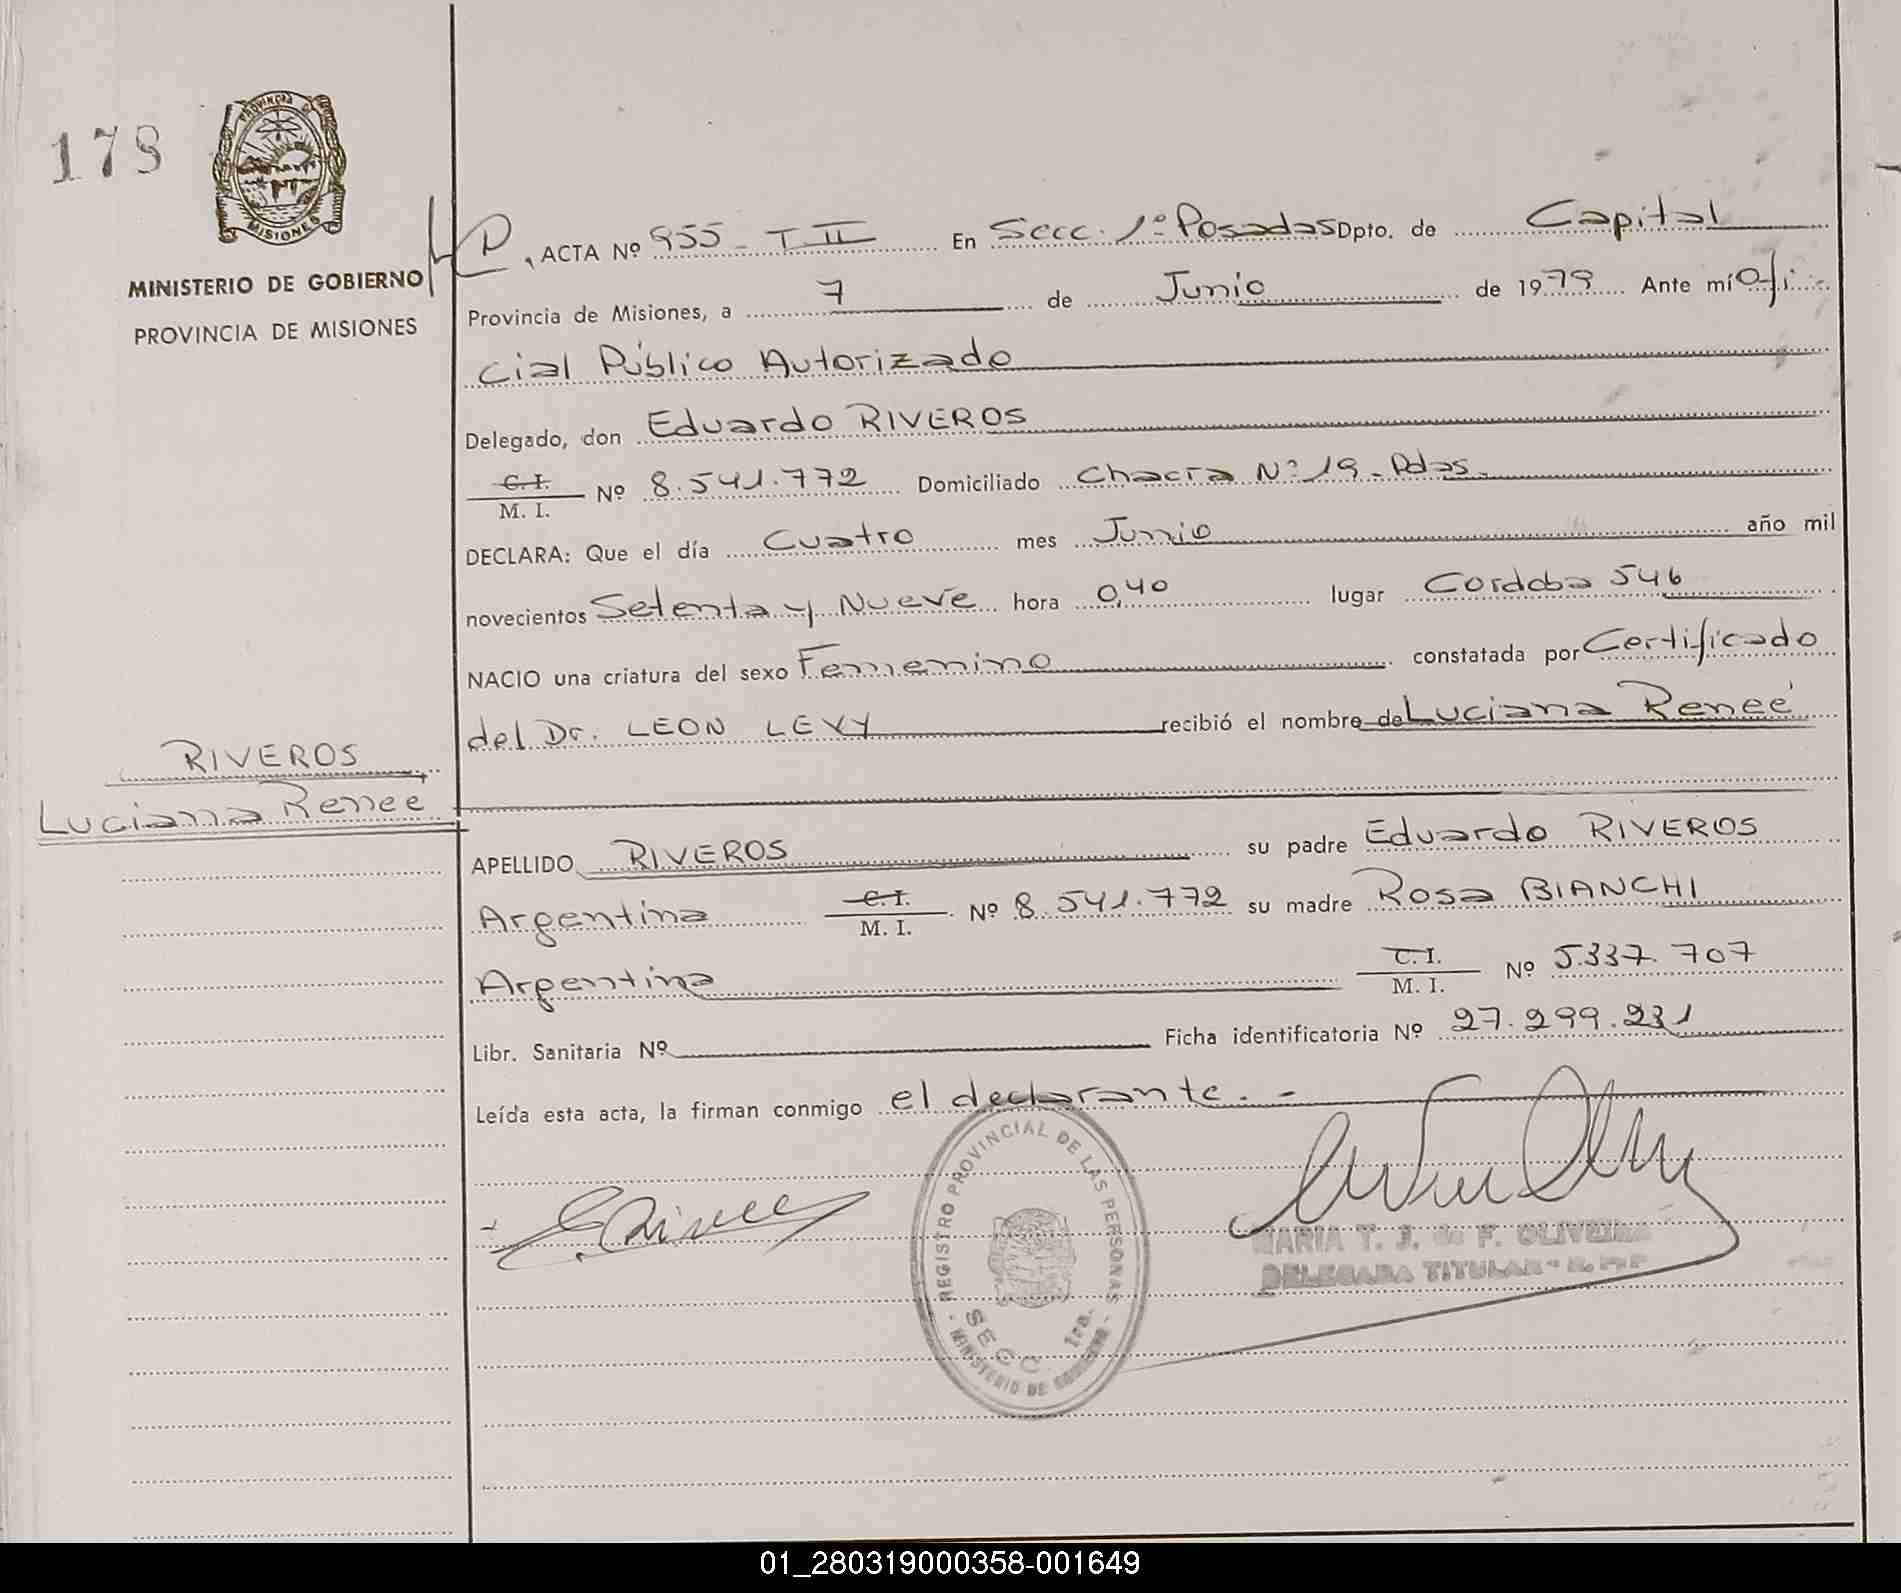 178
PROVINCIA DE
MISIONES
MINISTERIO DE GOBIERNO
PROVINCIA DE MISIONES
ACTA Nº 955 - T II En Secc. 1º Posadas Dpto. de Capital
Provincia de Misiones, a 7 de Junio de 1979 Ante mí Ofi-
cial Público Autorizado
Delegado, don Eduardo RIVEROS
C.I. / M. I. Nº 8.541.772 Domiciliado Chacra Nº 19 - Pdas.
DECLARA: Que el día Cuatro mes Junio año mil
novecientos Setenta y Nueve hora 0,40 lugar Cordoba 546
NACIO una criatura del sexo Femenino constatada por Certificado
del Dr. LEON LEVY recibió el nombre de Luciana Reneé
RIVEROS
Luciana Reneé
APELLIDO RIVEROS su padre Eduardo RIVEROS
Argentina C.I. / M. I. Nº 8.541.772 su madre Rosa BIANCHI
Argentina C.I. / M. I. Nº 5.337.707
Libr. Sanitaria Nº Ficha identificatoria Nº 27.299.231
Leída esta acta, la firman conmigo el declarante. -
REGISTRO PROVINCIAL DE LAS PERSONAS
SECC. 1ra.
MINISTERIO DE GOBIERNO
MARIA T. J. de F. OLIVEIRA
DELEGADA TITULAR - R. P. P.
01_280319000358-001649